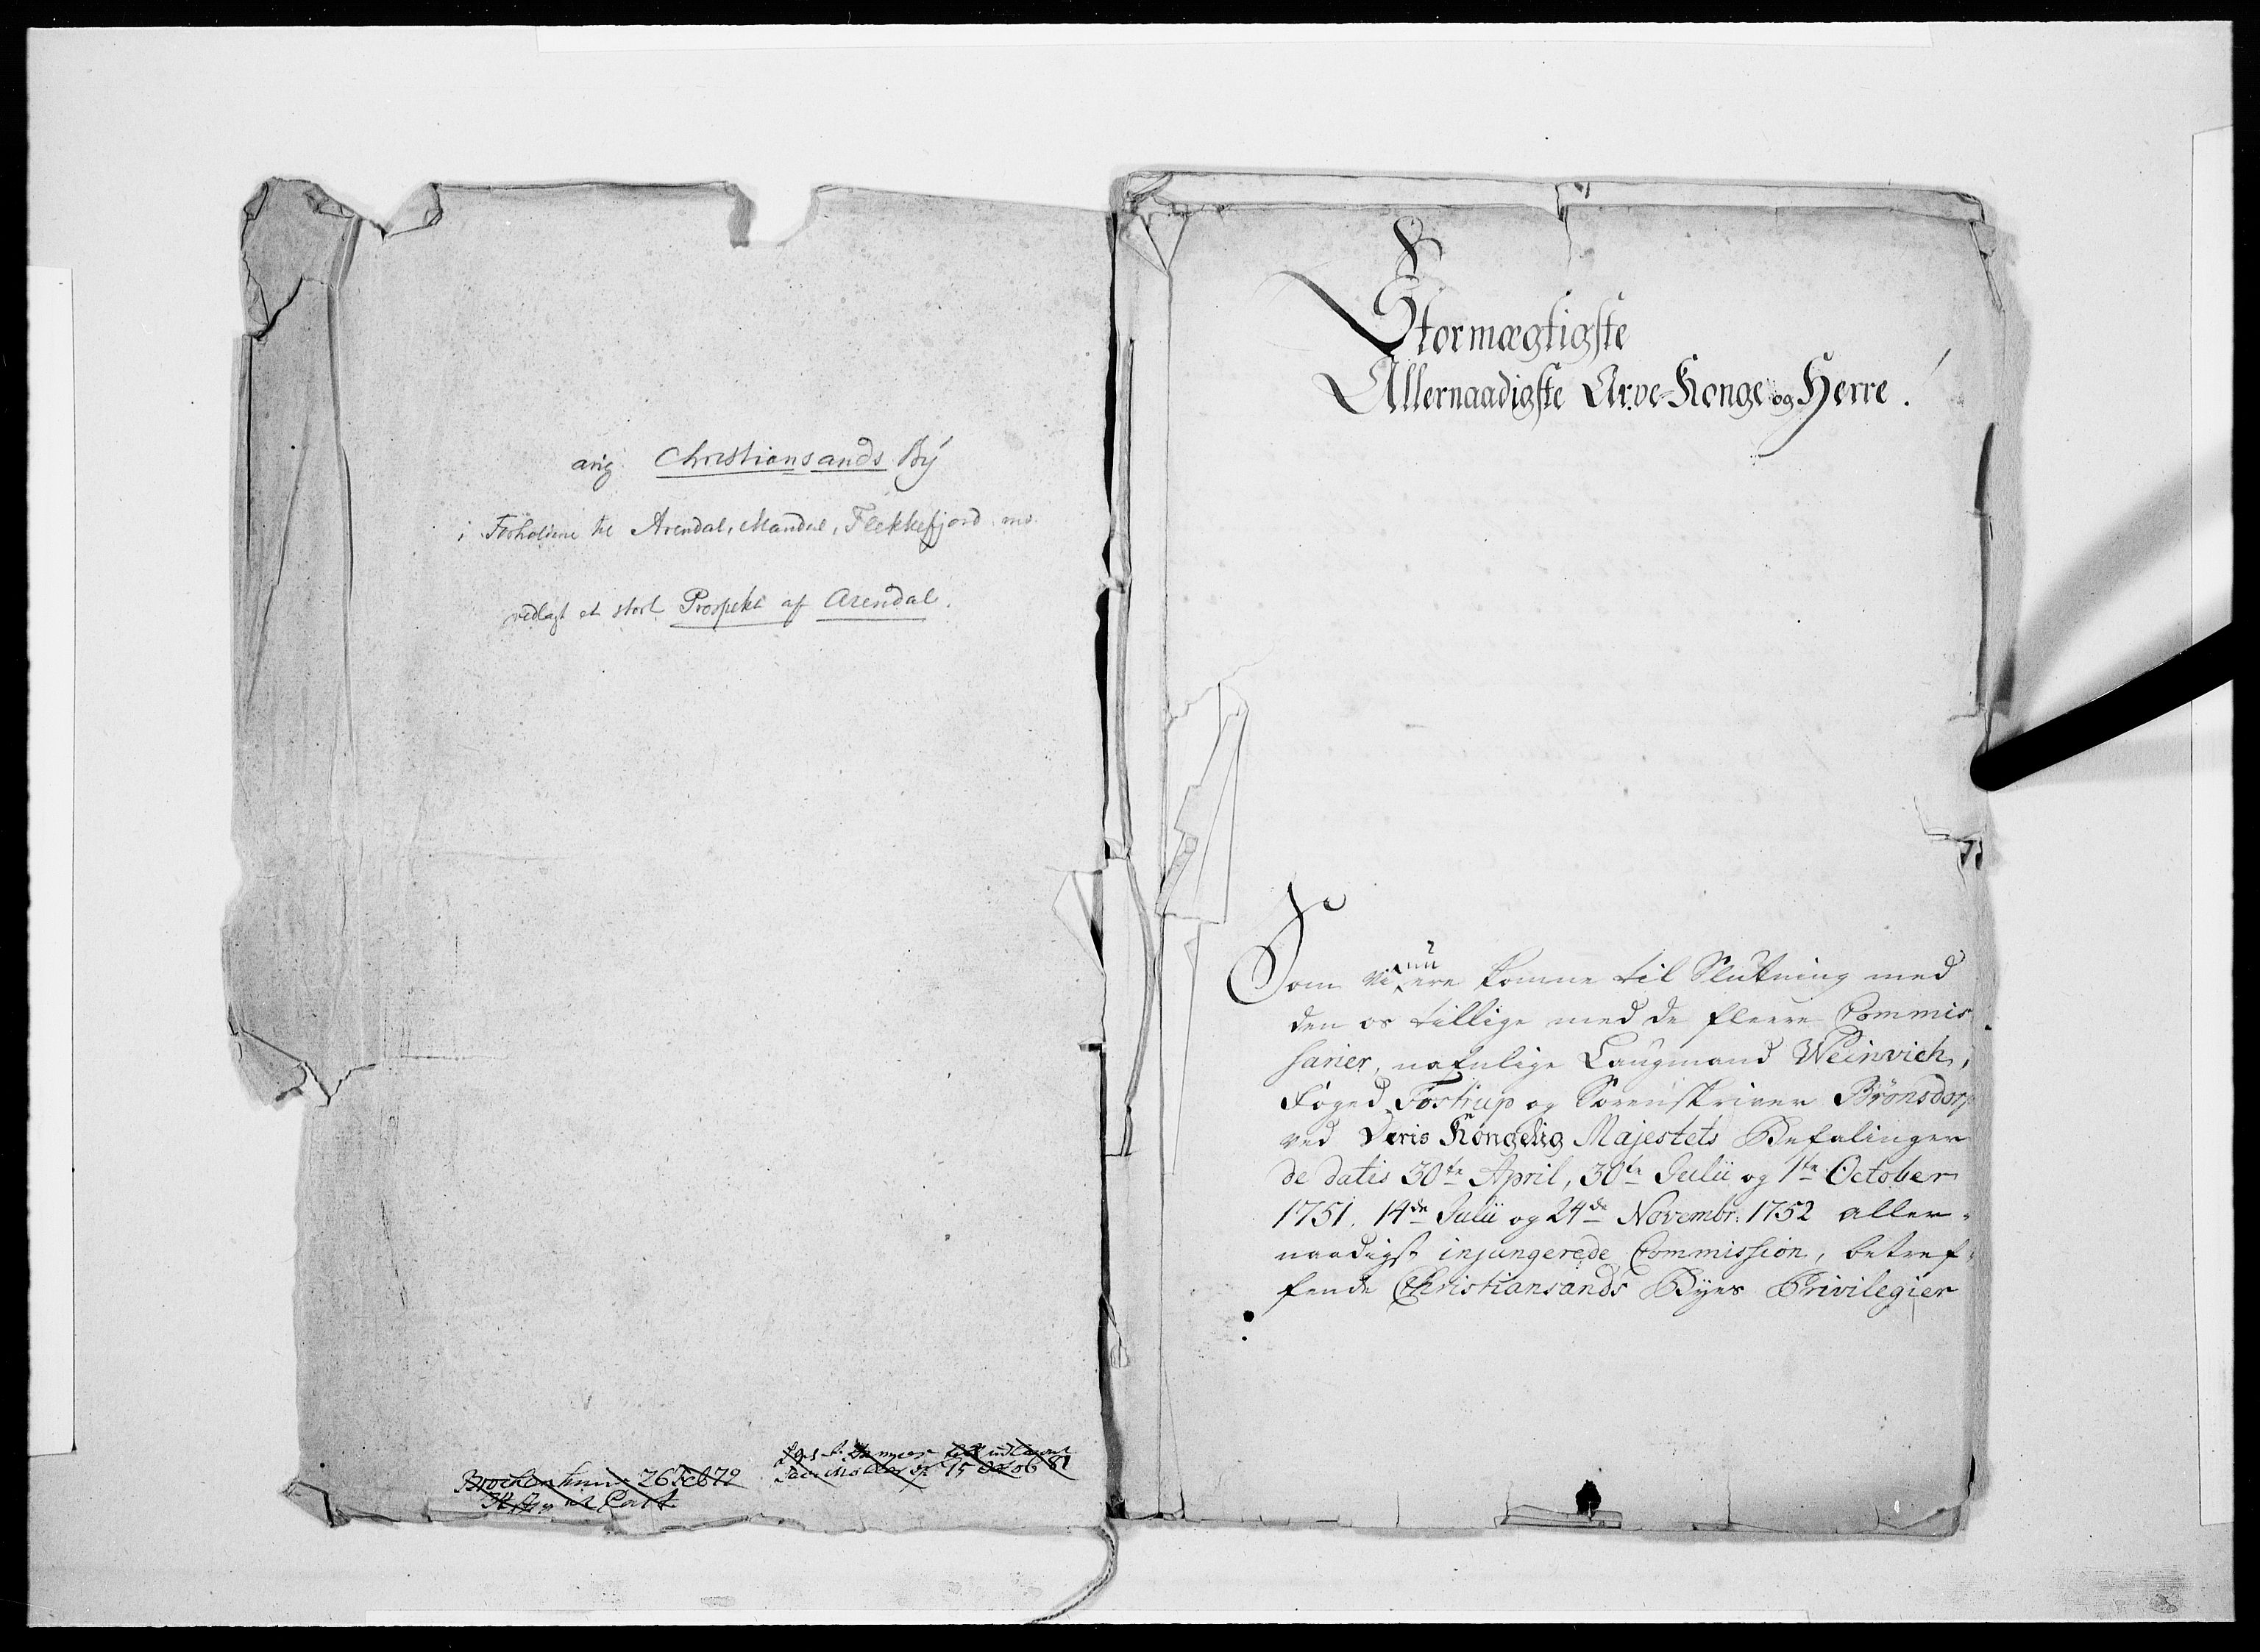 ang Christiansands By
i Forholdene til Arendal, Mandal, Flekkefjord mv.
vedlagt et stort Prospekt af Arendal.
26 Feb 79
15 Oct 06 81
Stormægtigste
Allernaadigste Arve-Konge og Herre!
Som Vi nu ere komne til Slutning med
den os tillige med de fleere Commis
sarier, nafnlige Laugmand Weinvich,
Foged Fostrup og Sorenskriver Brönsdorp
ved Deris Kongelig Majestets Befalinger
de datis 30te April, 30te Julii og 1te October
1751. 14de Julii og 24de Novembr: 1752 aller-
naadigst injungerede Commission, betref-
fende Christiansands Byes Privilegier